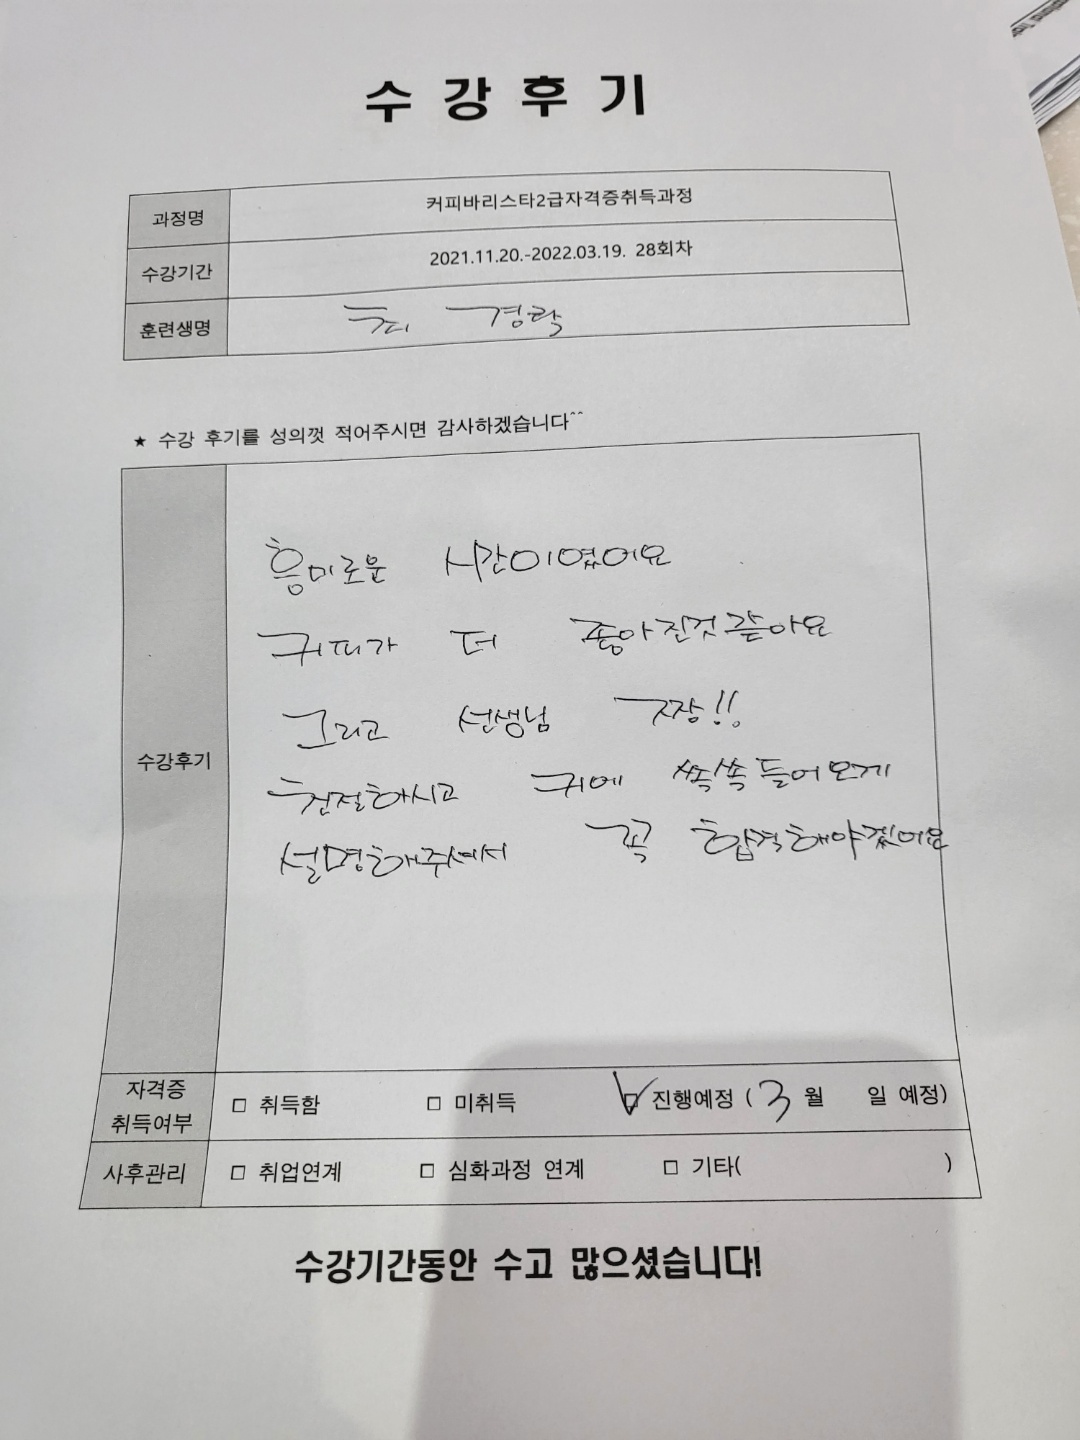 수 강 후 기
과정명 커피바리스타2급자격증취득과정
수강기간 2021.11.20.-2022.03.19. 28회차
훈련생명 최 경락
★ 수강 후기를 성의껏 적어주시면 감사하겠습니다^^
수강후기
흥미로운 시간이였어요
커피가 더 좋아진것같아요
그리고 선생님 짱!!
친절하시고 귀에 쏙쏙들어오게
설명해주셔서 꼭 합격해야겠어요
자격증 취득여부 □ 취득함 □ 미취득 ☑ 진행예정 ( 3 월 일 예정)
사후관리 □ 취업연계 □ 심화과정 연계 □ 기타( )
수강기간동안 수고 많으셨습니다!